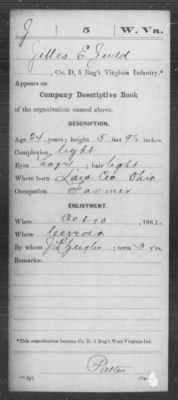 J 5 W. Va.
E. Judd
, Co. D, 5 Reg't Virginia Infantry.*
Appears on
Company Descriptive Book
of the organization named above.
DESCRIPTION.
Age 24 years; height 5 feet 9½ inches
Complexion light
Eyes ; hair light
Where born Co Ohio
Occupation Farmer
ENLISTMENT.
When Oct 10 , 1861.
Where Ceredo
By whom J L Zeigler ; term 3 y'rs.
Remarks:
*This organization became Co. D, 5 Reg't West Virginia Inf.